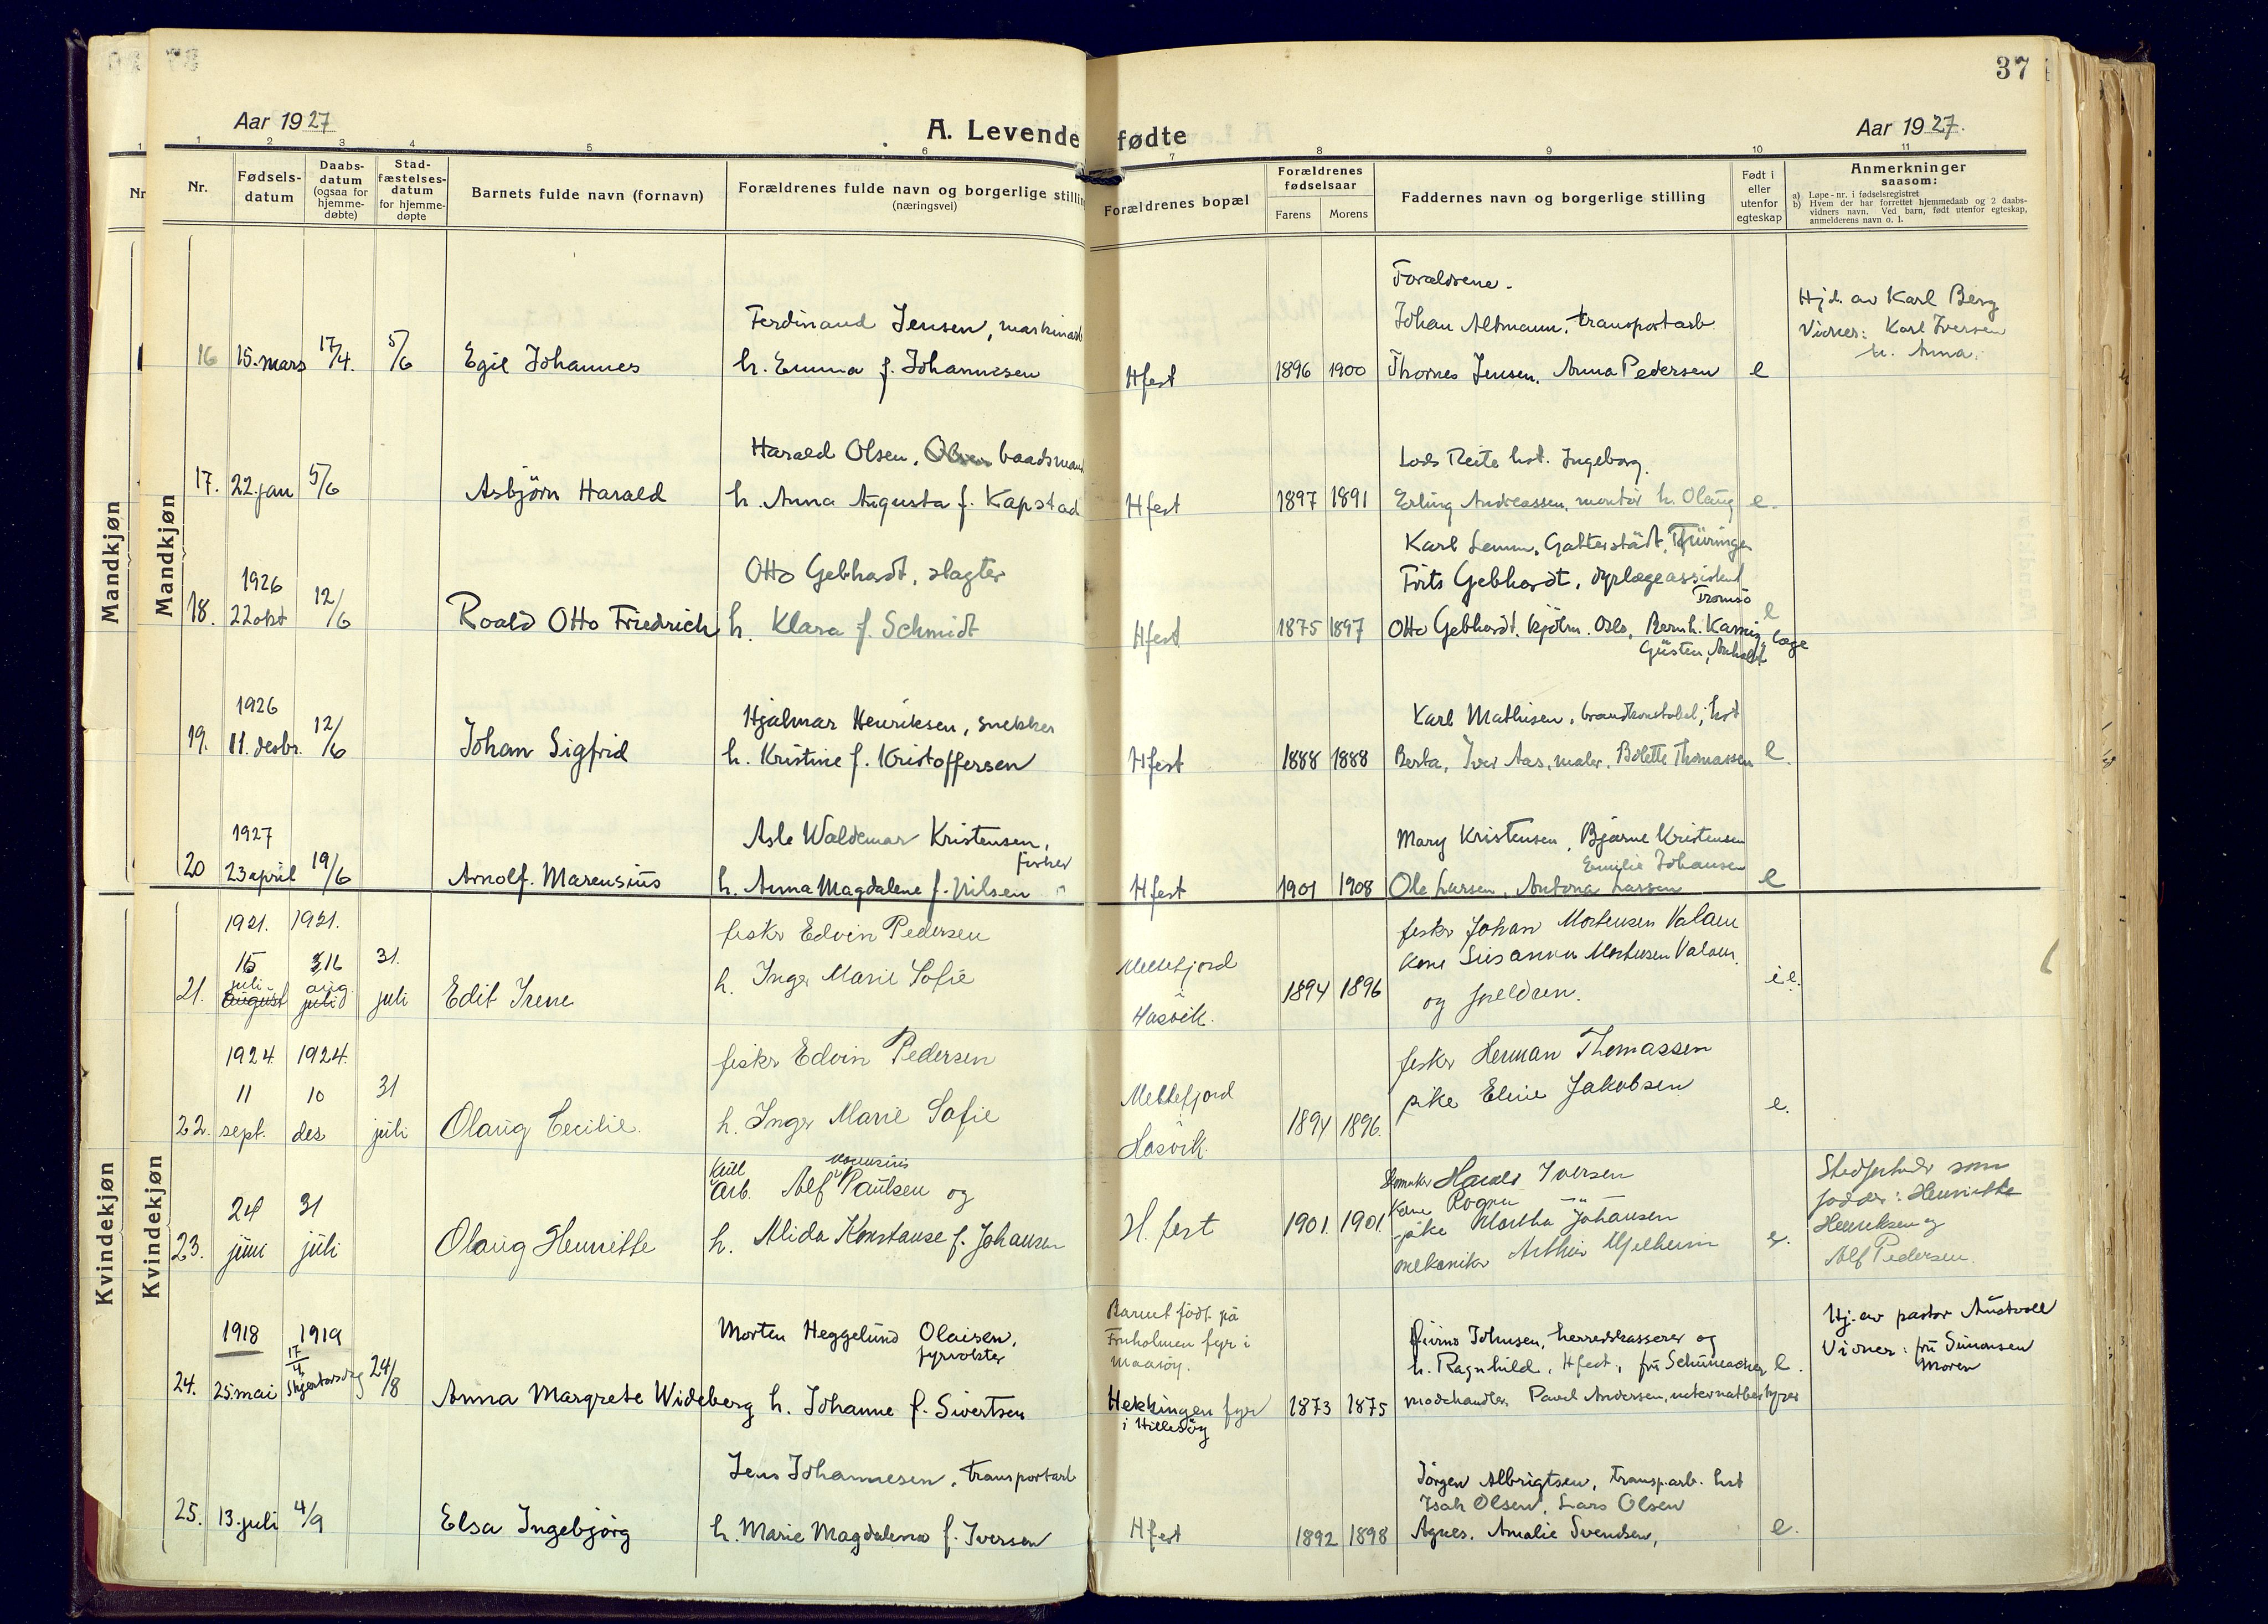 37
Aar 1927
A. Levende fødte
Aar 1927.
1 2 3 4 5 6 7 8 9 10 11
Nr.
Fødselsdatum
Daabsdatum (ogsaa for hjemmedøbte)
Stadfæstelsesdatum for hjemmedøpte
Barnets fulde navn (fornavn)
Forældrenes fulde navn og borgerlige stillin
(næringsvei)
Forældrenes bopæl
Forældrenes fødselsaar
Farens Morens
Faddernes navn og borgerlige stilling
Født i eller utenfor egteskap
Anmerkninger
saasom:
a) Løpe-nr. i fødselsregistret
b) Hvem der har forrettet hjemmedaab og 2 daabsvidners navn. Ved barn, født utenfor egteskap, anmelderens navn o. l.
Mandkjøn
Mandkjøn
Forældrene.
Ferdinand Jensen, maskinarb
Johan Altmann, transportarb.
Hjd. av Karl Berg
Vidner: Karl Iversen
h. Anna.
16 15. mars 17/4. 5/6 Egil Johannes h. Emma f. Johannesen Hfest 1896 1900 Thornes Jensen, Anna Pedersen e
Harald Olsen, baadsmand
Lods Reite hst. Ingeborg.
17. 22. jan 5/6 Asbjörn Harald h. Anna Augusta f. Kapstad Hfest 1897 1891 Erling Andreassen, montör h. Olaug e.
Karl Lemm, Gatterstädt, Thüringen
1926 Otto Gebhardt, slagter Frits Gebhardt, dyrlægeassistent
Tromsö
18. 22 okt 12/6 Roald Otto Friedrich h. Klara f. Schmidt Hfest 1875 1897 Otto Gebhardt, kjøbm. Oslo, Bernh. læge e
Güsten, Anhalt
1926 Hjalmar Henriksen, snekker Karl Mathisen, brandkonstabel, hst
19. 11. desbr. 12/6 Johan Sigfrid h. Kristine f. Kristoffersen Hfest 1888 1888 Berta, Iver Aas, maler, Bolette Thomassen e.
1927 Asle Waldemar Kristensen, fisker
Mary Kristensen, Bjarne Kristensen
Emilie Johansen
20 23 april 19/6 Arnolf. Marensius h. Anna Magdalene f. Nilsen Hfest 1901 1908 Ole Larsen, Antona Larsen e
Kvindekjøn
Kvindekjøn
1921. 1921. fisker Edvin Pedersen fisker Johan Mortensen Valan
15 16 31. Meltefjord kone Susanna Mortensen Valan.
juli aug.
21. august juli juli Edit Irene h. Inger Marie Sofie Hasvik. 1894 1896 og foreldren. e.
1924. 1924. fisker Edvin Pedersen fisker Herman Thomassen
11 10 31 Meltefjord pike Eline Jakobsen
22. sept. des juli Olaug Cecilie. h. Inger Marie Sofie Hasvik. 1894 1896. e.
Kull Marensius
arb. Alf Paulsen og
Harald Iversen
Kone Ragna
pike Martha Johansen
mekaniker Arthur Mjelheim
24 31
23. juni juli Olaug Henriette h. Alida Konstanse f. Johansen H.fest 1901. 1901. e.
Stedfortreder som
fadder: Henriette
Henriksen og
Alf Pedersen.
1918 1919 17/4 Morten Heggelund Olaisen, fyrvokter
Barnet født på
Fruholmen fyr i
Maasöy.
Johnsen, herredskasserer og
h. Ragnhild, Hfest, frü Schumacher
modehandler, Pavel Andersen, internatbestyrer
24. 25. mai 24/8 Anna Margrete Wideberg h. Johanne f. Sivertsen Hekkingen fyr i Hillesöy 1873 1875 e.
Hj. av pastor Austvoll
Vidner: frü Simonsen
Moren
Jens Johannesen, transportarb
Jörgen Albrigtsen, transp.arb. hst
Isak Olsen, Lars Olsen
25. 13. juli 4/9 Elsa Ingebjörg h. Marie Magdalena f. Iversen Hfest 1892 1898 Agnes. Amalie Svendsen, e.